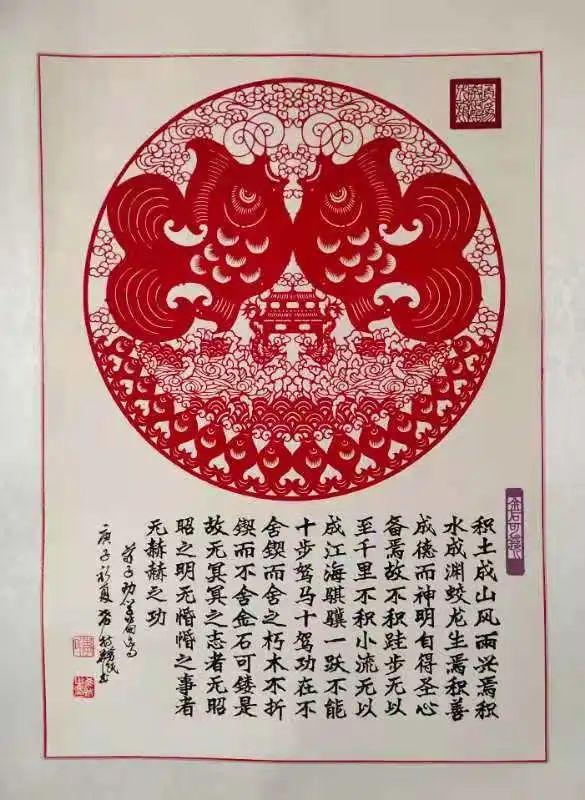 金石可镂
积土成山风雨兴焉积
水成渊蛟龙生焉积善
成德而神明自得圣心
备焉故不积跬步无以
至千里不积小流无以
成江海骐骥一跃不能
十步驽马十驾功在不
舍锲而舍之朽木不折
锲而不舍金石可镂是
故无冥冥之志者无昭
昭之明无惛惛之事者
无赫赫之功
荀子劝学篇句
庚子初夏 书